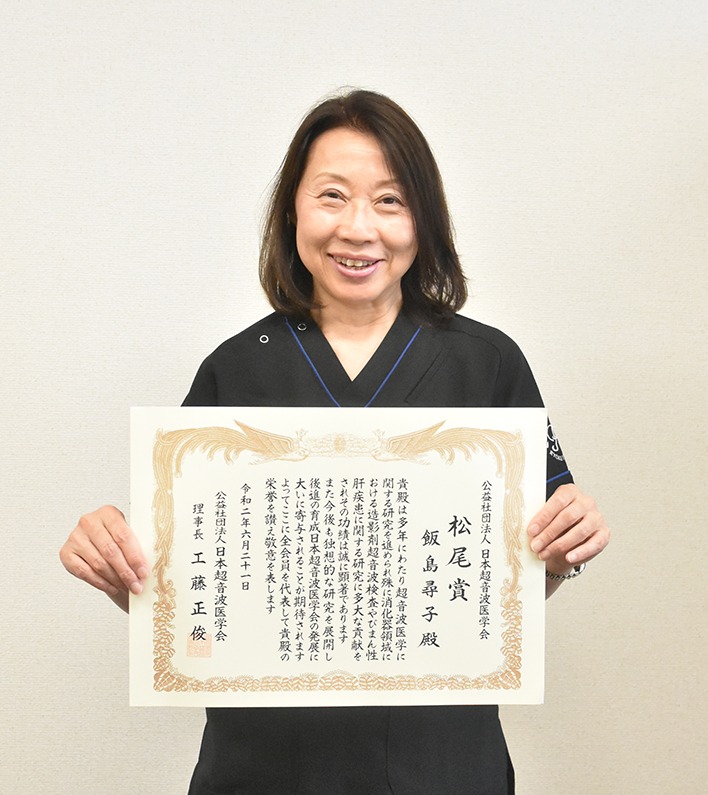 公益社団法人 日本超音波医学会
松尾賞
飯島尋子 殿
貴殿は多年にわたり超音波医学に
関する研究を進められ殊に消化器領域に
おける造影剤超音波検査やびまん性
肝疾患に関する研究に多大な貢献を
されその功績は誠に顕著であります
また今後も独想的な研究を展開し
後進の育成日本超音波医学会の発展に
大いに寄与されることが期待されます
よってここに全会員を代表して貴殿の
栄誉を讃え敬意を表します
令和二年六月二十一日
公益社団法人 日本超音波医学会
理事長 工藤正俊